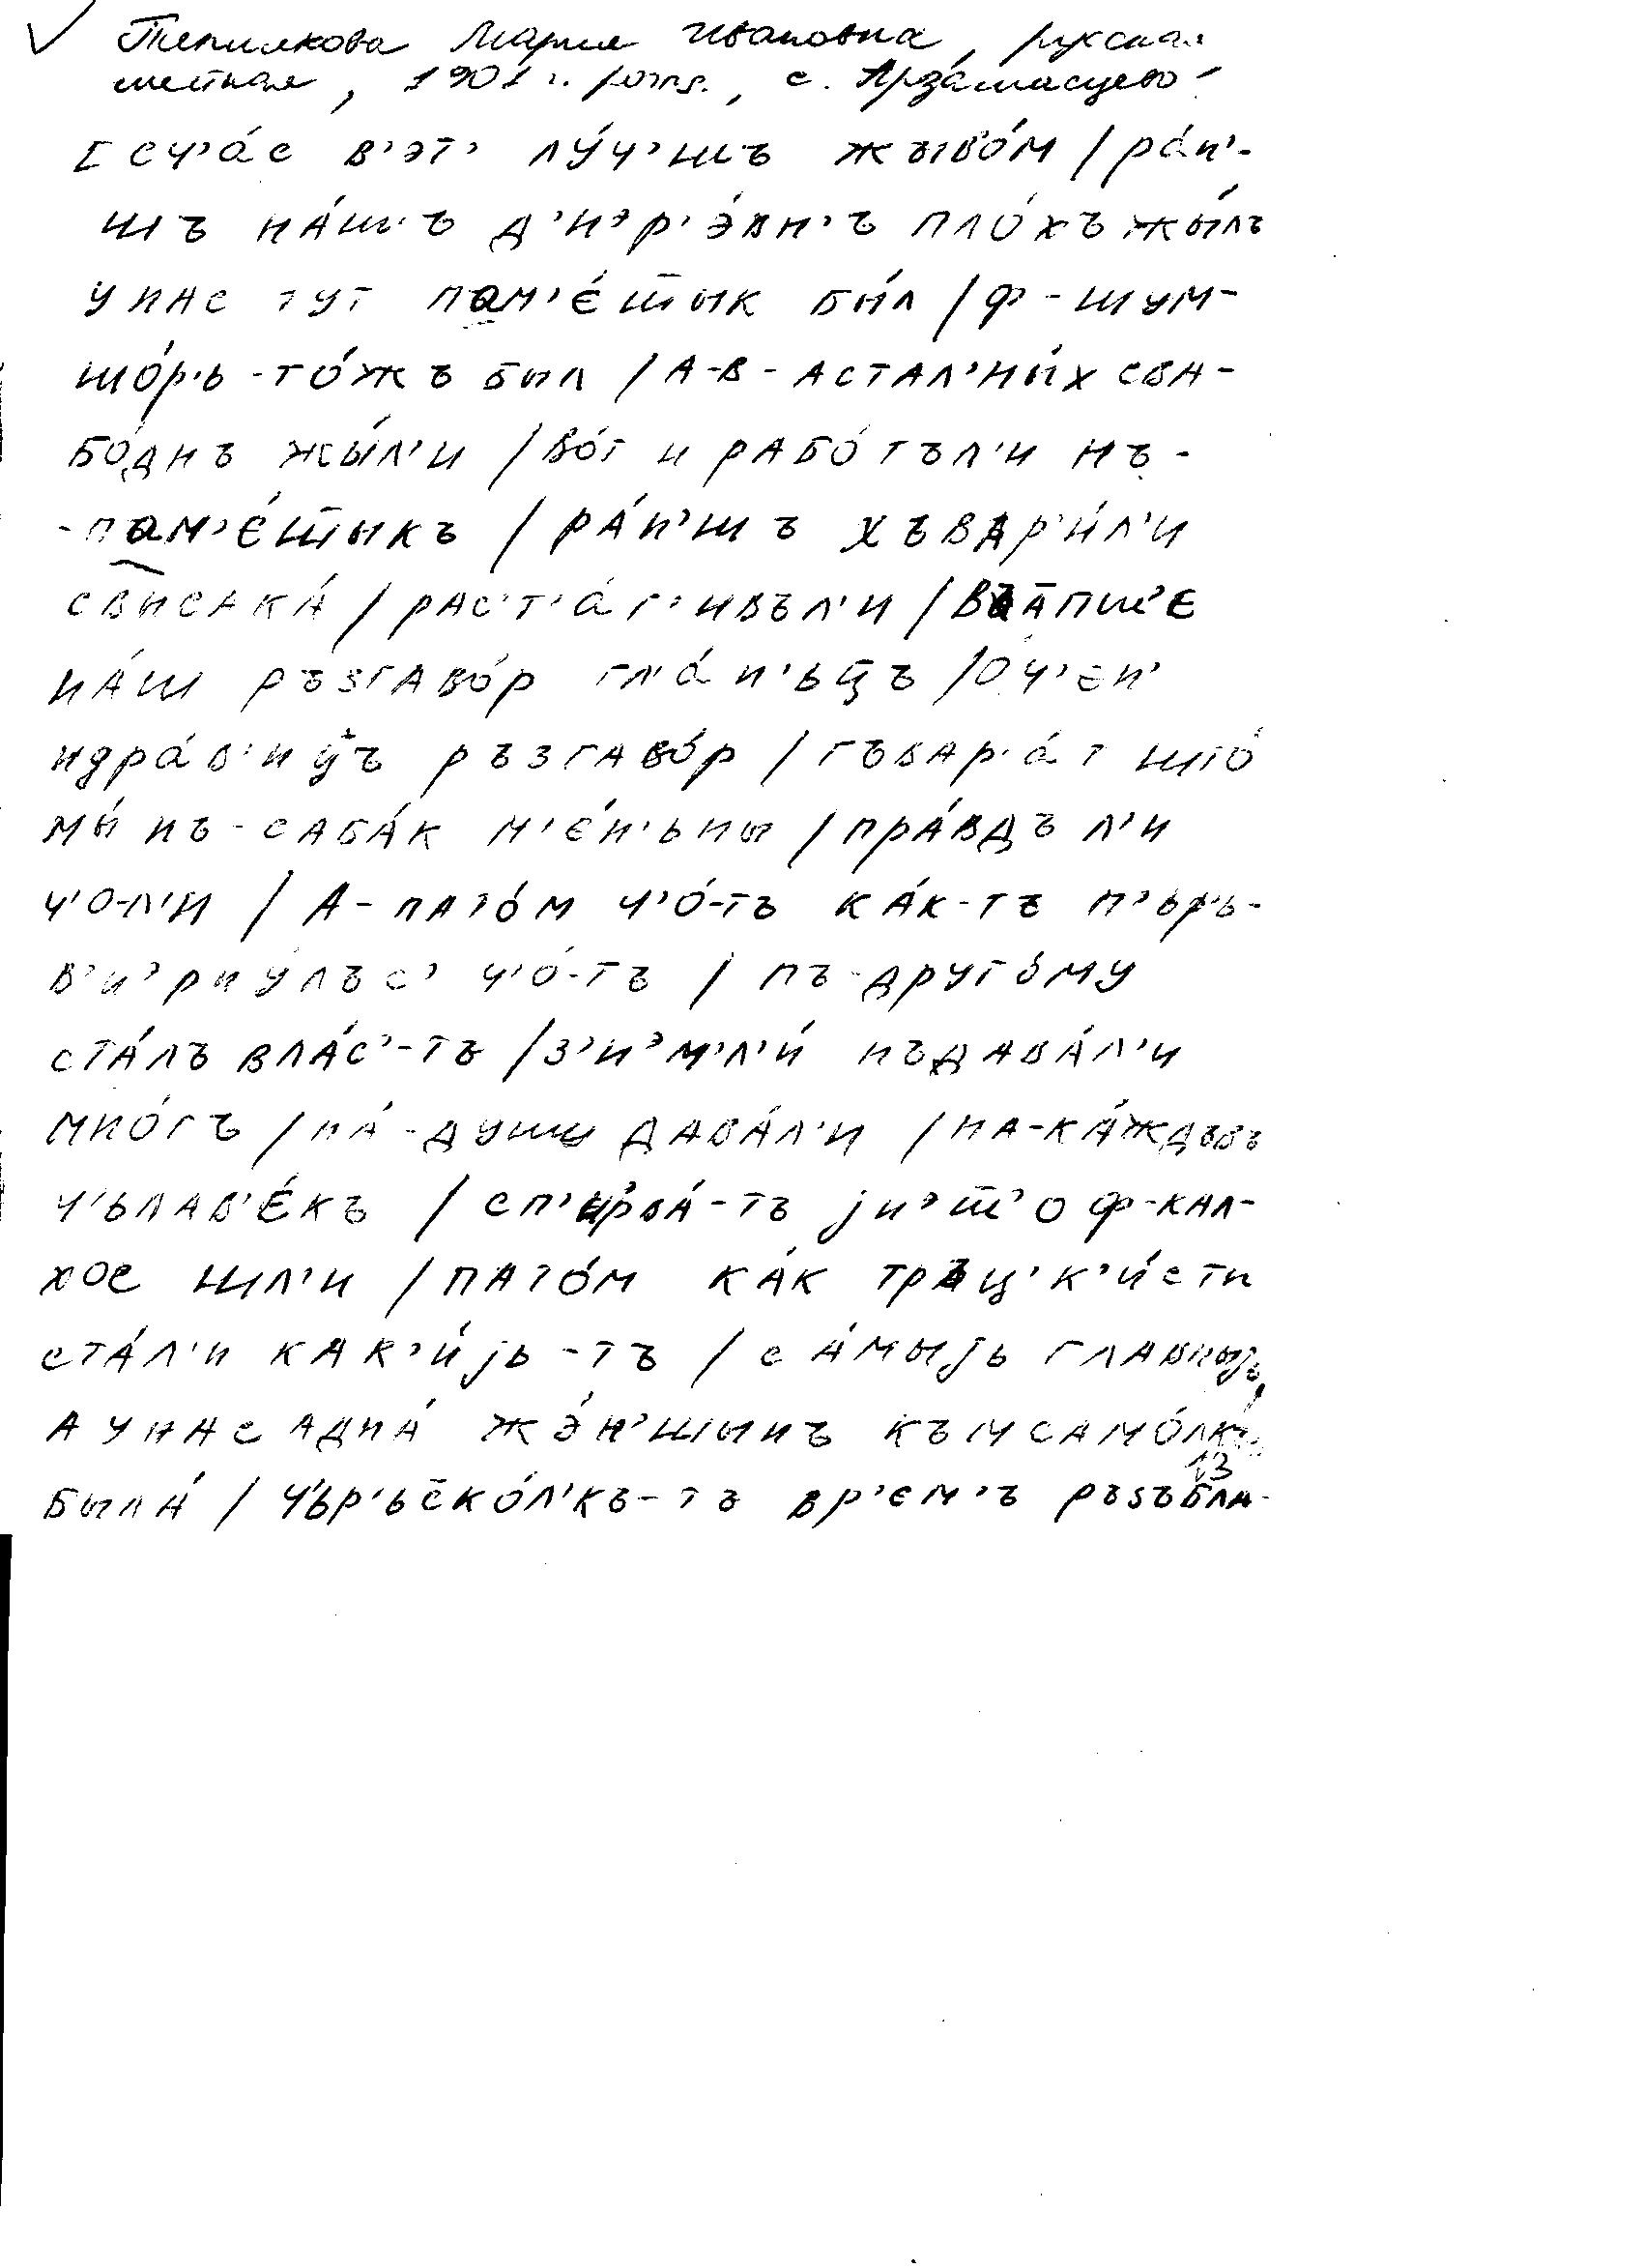 ✓ Тепилкова Мария Ивановна, русская
местная, 1901 г. рожд., с. Арзамасцево
[сч’а́с в’эт’ лу́ч’шъ жъıво́м / ра́н’-
шъ на́ш·ъ д’иэр’э́вн’ъ пло́хъ жы́лъ
у нас тут пам’е́ш̄ык бы́л / ф-шум-
шо́р’ь-то́жъ был / а-в-астал’ны́х сва-
бо́днъ жы́л’и / во́т и рабо́тъл’и нъ-
-пам’е́ш̄ыкъ / ра́н’шъ хъвар’и́л’и
свысака́ / рас’т’а́г’ивъл’и / ваапш’е
на́ш ръзгаво́р гл’а́н’ьц̄ъ / о́ч’ен’
ндра́в’иц̄ъ ръзгаво́р / гъвар’а́т што́
мы́ нъ-саба́к м’е́н’ьны / пра́вдъ л’и
ч’о-л’и / а-пато́м ч’о́-тъ ка́к-тъ п’ьр’ь-
в’иэрну́лъс’ ч’о́-тъ / пъ-друго́му
ста́лъ вла́с’-тъ / з’иэм’л’и́ нъдава́л’и
мно́гъ / на́-душу дава́л’и / на-ка́ждъвъ
ч’ьлав’е́къ / сп’ирва́-тъ jиэш̄’о ф-кал-
хос шл’и / пато́м ка́к трац’к’и́сты
ста́л’и как’и́jь-тъ / са́мыjь главныjь,
а у нас адна́ жэ́н’шынъ къмсамо́лкъ
была́ / ч’ьр’ьс̄ко́л’къ-тъ вр’ем’ъ ръзъбла-
13